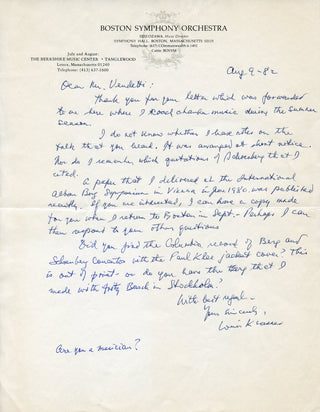 BOSTON SYMPHONY ORCHESTRA
SEIJI OZAWA, Music Director
SYMPHONY HALL, BOSTON, MASSACHUSETTS 02115
Telephone: (617)
Cable: BOSYM
July and August:
THE BERKSHIRE MUSIC CENTER • TANGLEWOOD
Lenox, Massachusetts 01240
Telephone: (413) 637-1600
Aug 9 - 82
Dear Mr. Venditti:
Thank you for your letter which was forwarded
to me here where I coach chamber music during the summer
season.
I do not know whether I have notes on the
talk that you heard. It was arranged at short notice.
Nor do I remember which quotations of Schoenberg that I
cited.
A paper that I delivered at the International
Alban Berg Symposium in Vienna in June 1980 was published
recently. If you are interested, I can have a copy made
for you when I return to Boston in Sept. - Perhaps I can
then respond to your other questions
Did you find the Columbia record of Berg and
Schoenberg Concertos with the Paul Klee jacket cover? This
is out of print - or do you have the tape that I
made with Fritz Busch in Stockholm?
With best regards -
Yours sincerely,
Louis Krasner
Are you a musician?